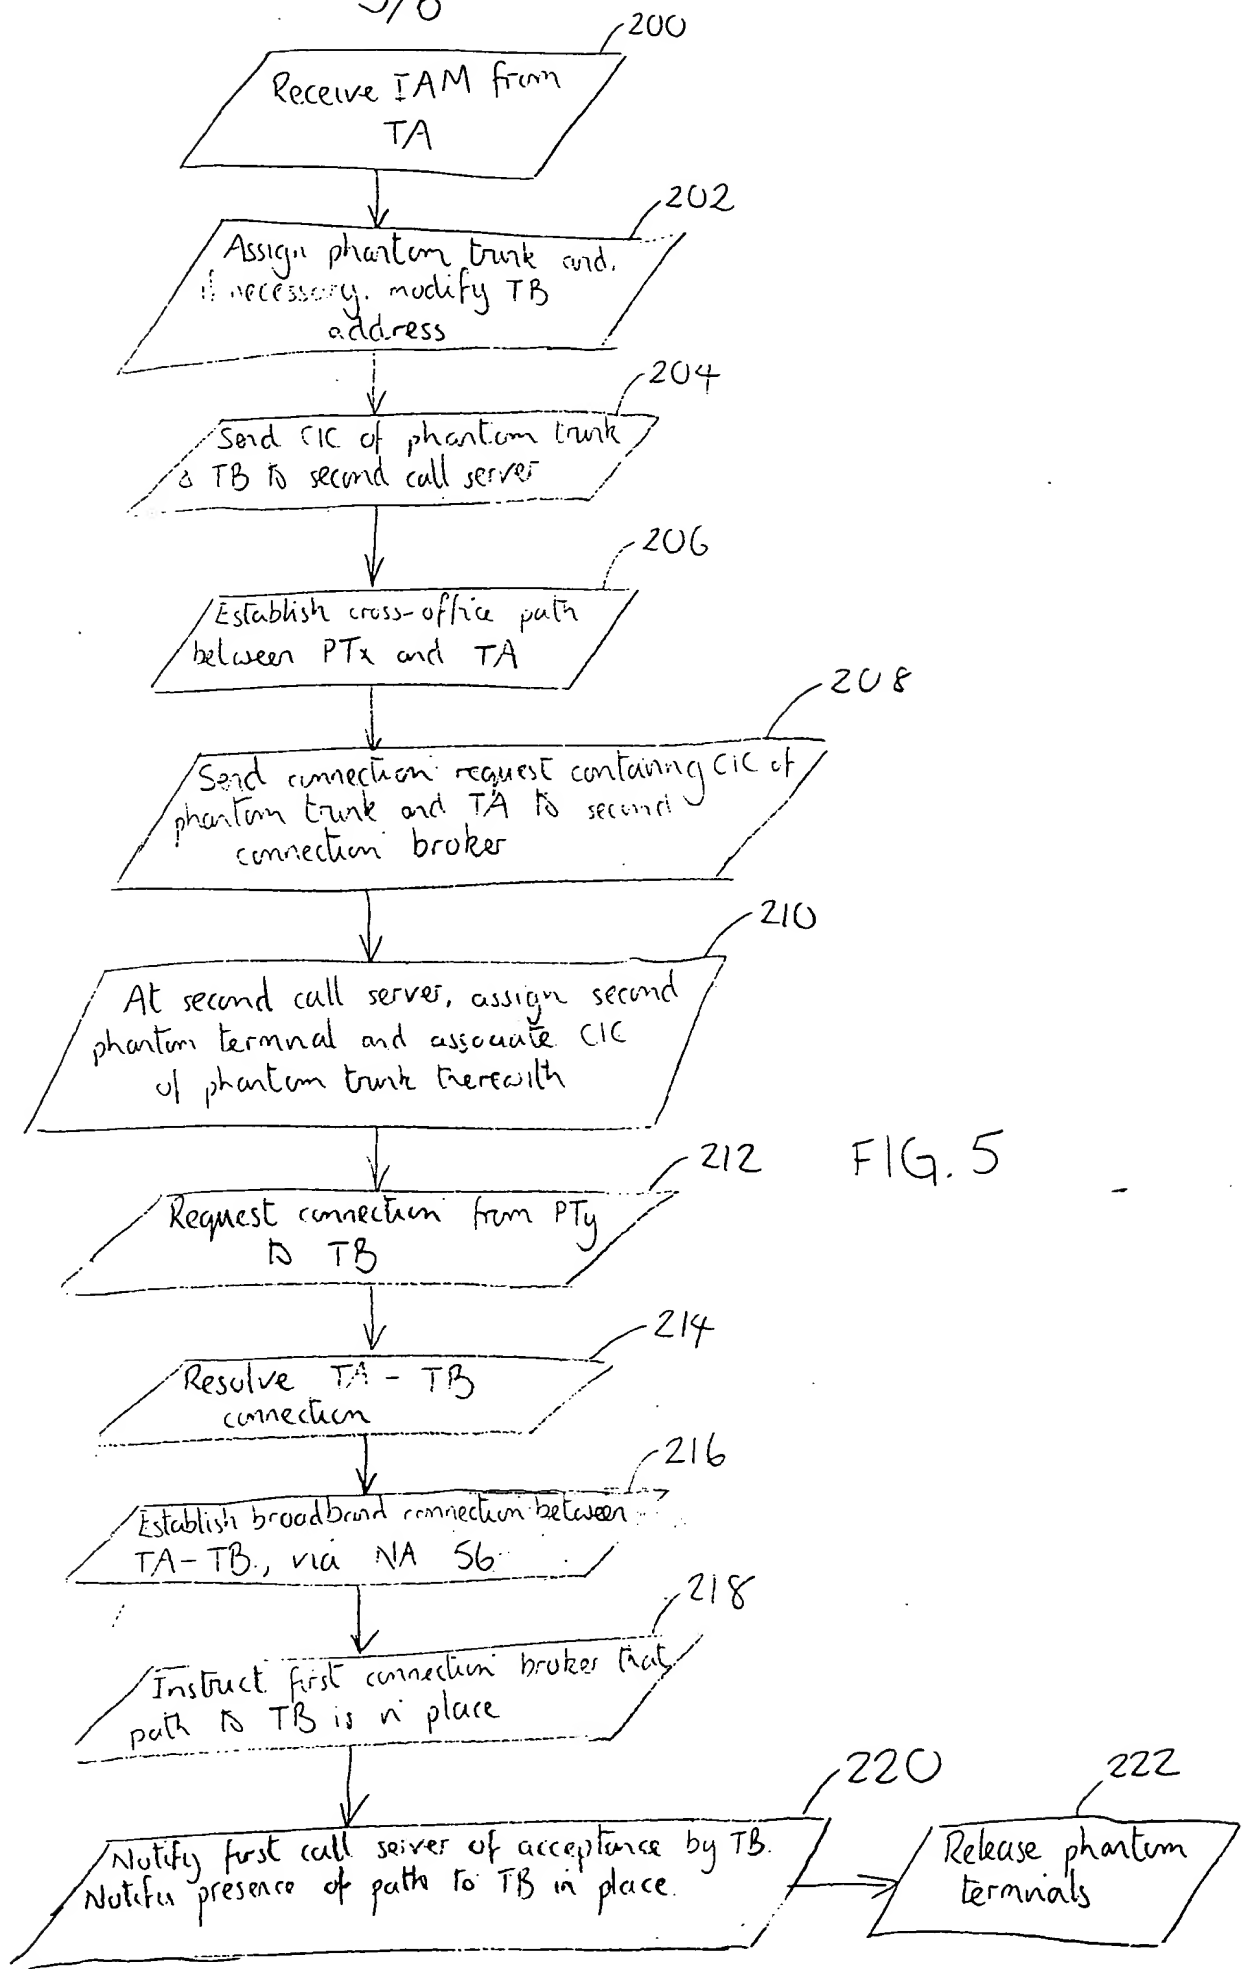 5/6
200
Receive IAM from
TA
202
Assign phantom trunk and,
if necessary, modify TB
address
204
Send CIC of phantom trunk
& TB to second call server
206
Establish cross-office path
between PTx and TA
208
Send connection request containing CIC of
phantom trunk and TA to second
connection broker
210
At second call server, assign second
phantom terminal and associate CIC
of phantom trunk therewith
212
Request connection from PTy
to TB
FIG. 5
214
Resolve TA - TB
connection
216
Establish broadband connection between
TA-TB, via NA 56
218
Instruct first connection broker that
path to TB is in place
220
Notify first call server of acceptance by TB.
Notifies presence of path to TB in place.
222
Release phantom
terminals